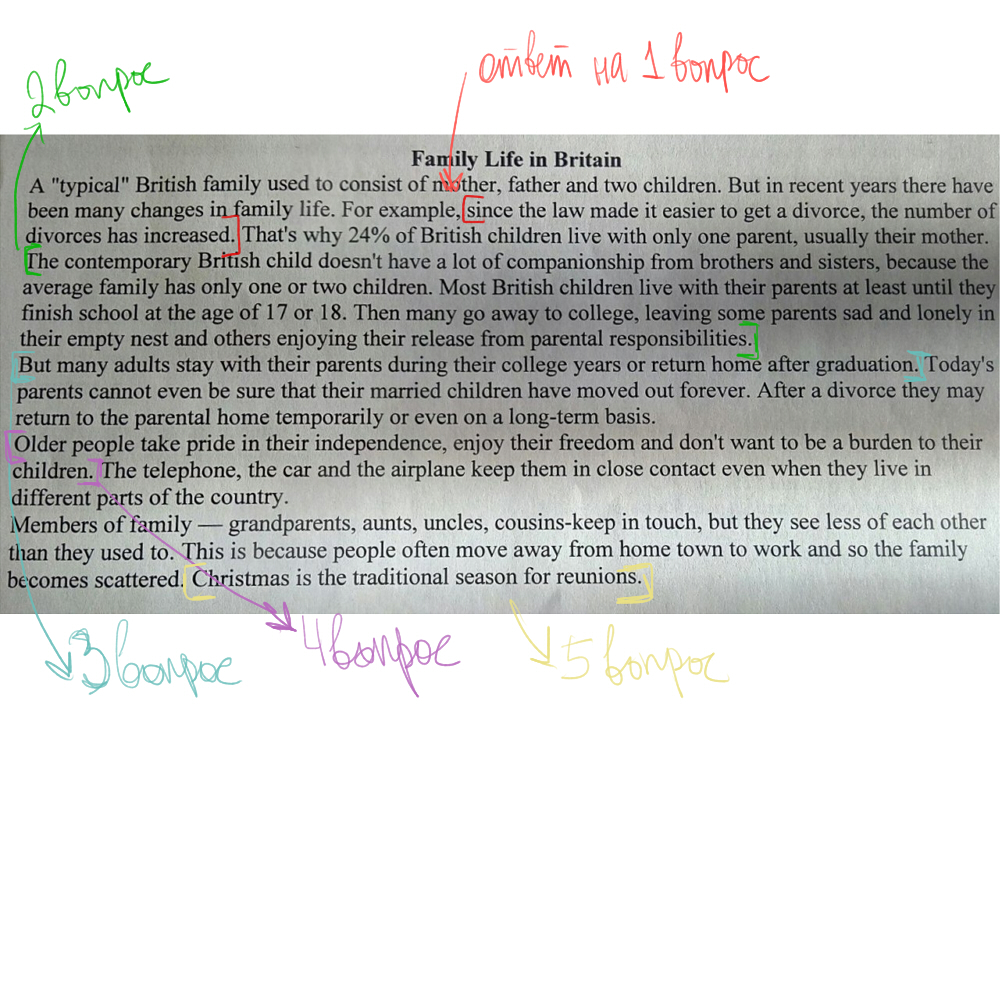 ответ на 1 вопрос
2 вопрос
Family Life in Britain
A "typical" British family used to consist of mother, father and two children. But in recent years there have
been many changes in family life. For example, since the law made it easier to get a divorce, the number of
divorces has increased. That's why 24% of British children live with only one parent, usually their mother.
The contemporary British child doesn't have a lot of companionship from brothers and sisters, because the
average family has only one or two children. Most British children live with their parents at least until they
finish school at the age of 17 or 18. Then many go away to college, leaving some parents sad and lonely in
their empty nest and others enjoying their release from parental responsibilities.
But many adults stay with their parents during their college years or return home after graduation. Today's
parents cannot even be sure that their married children have moved out forever. After a divorce they may
return to the parental home temporarily or even on a long-term basis.
Older people take pride in their independence, enjoy their freedom and don't want to be a burden to their
children. The telephone, the car and the airplane keep them in close contact even when they live in
different parts of the country.
Members of family — grandparents, aunts, uncles, cousins-keep in touch, but they see less of each other
than they used to. This is because people often move away from home town to work and so the family
becomes scattered. Christmas is the traditional season for reunions.
3 вопрос
4 вопрос
5 вопрос